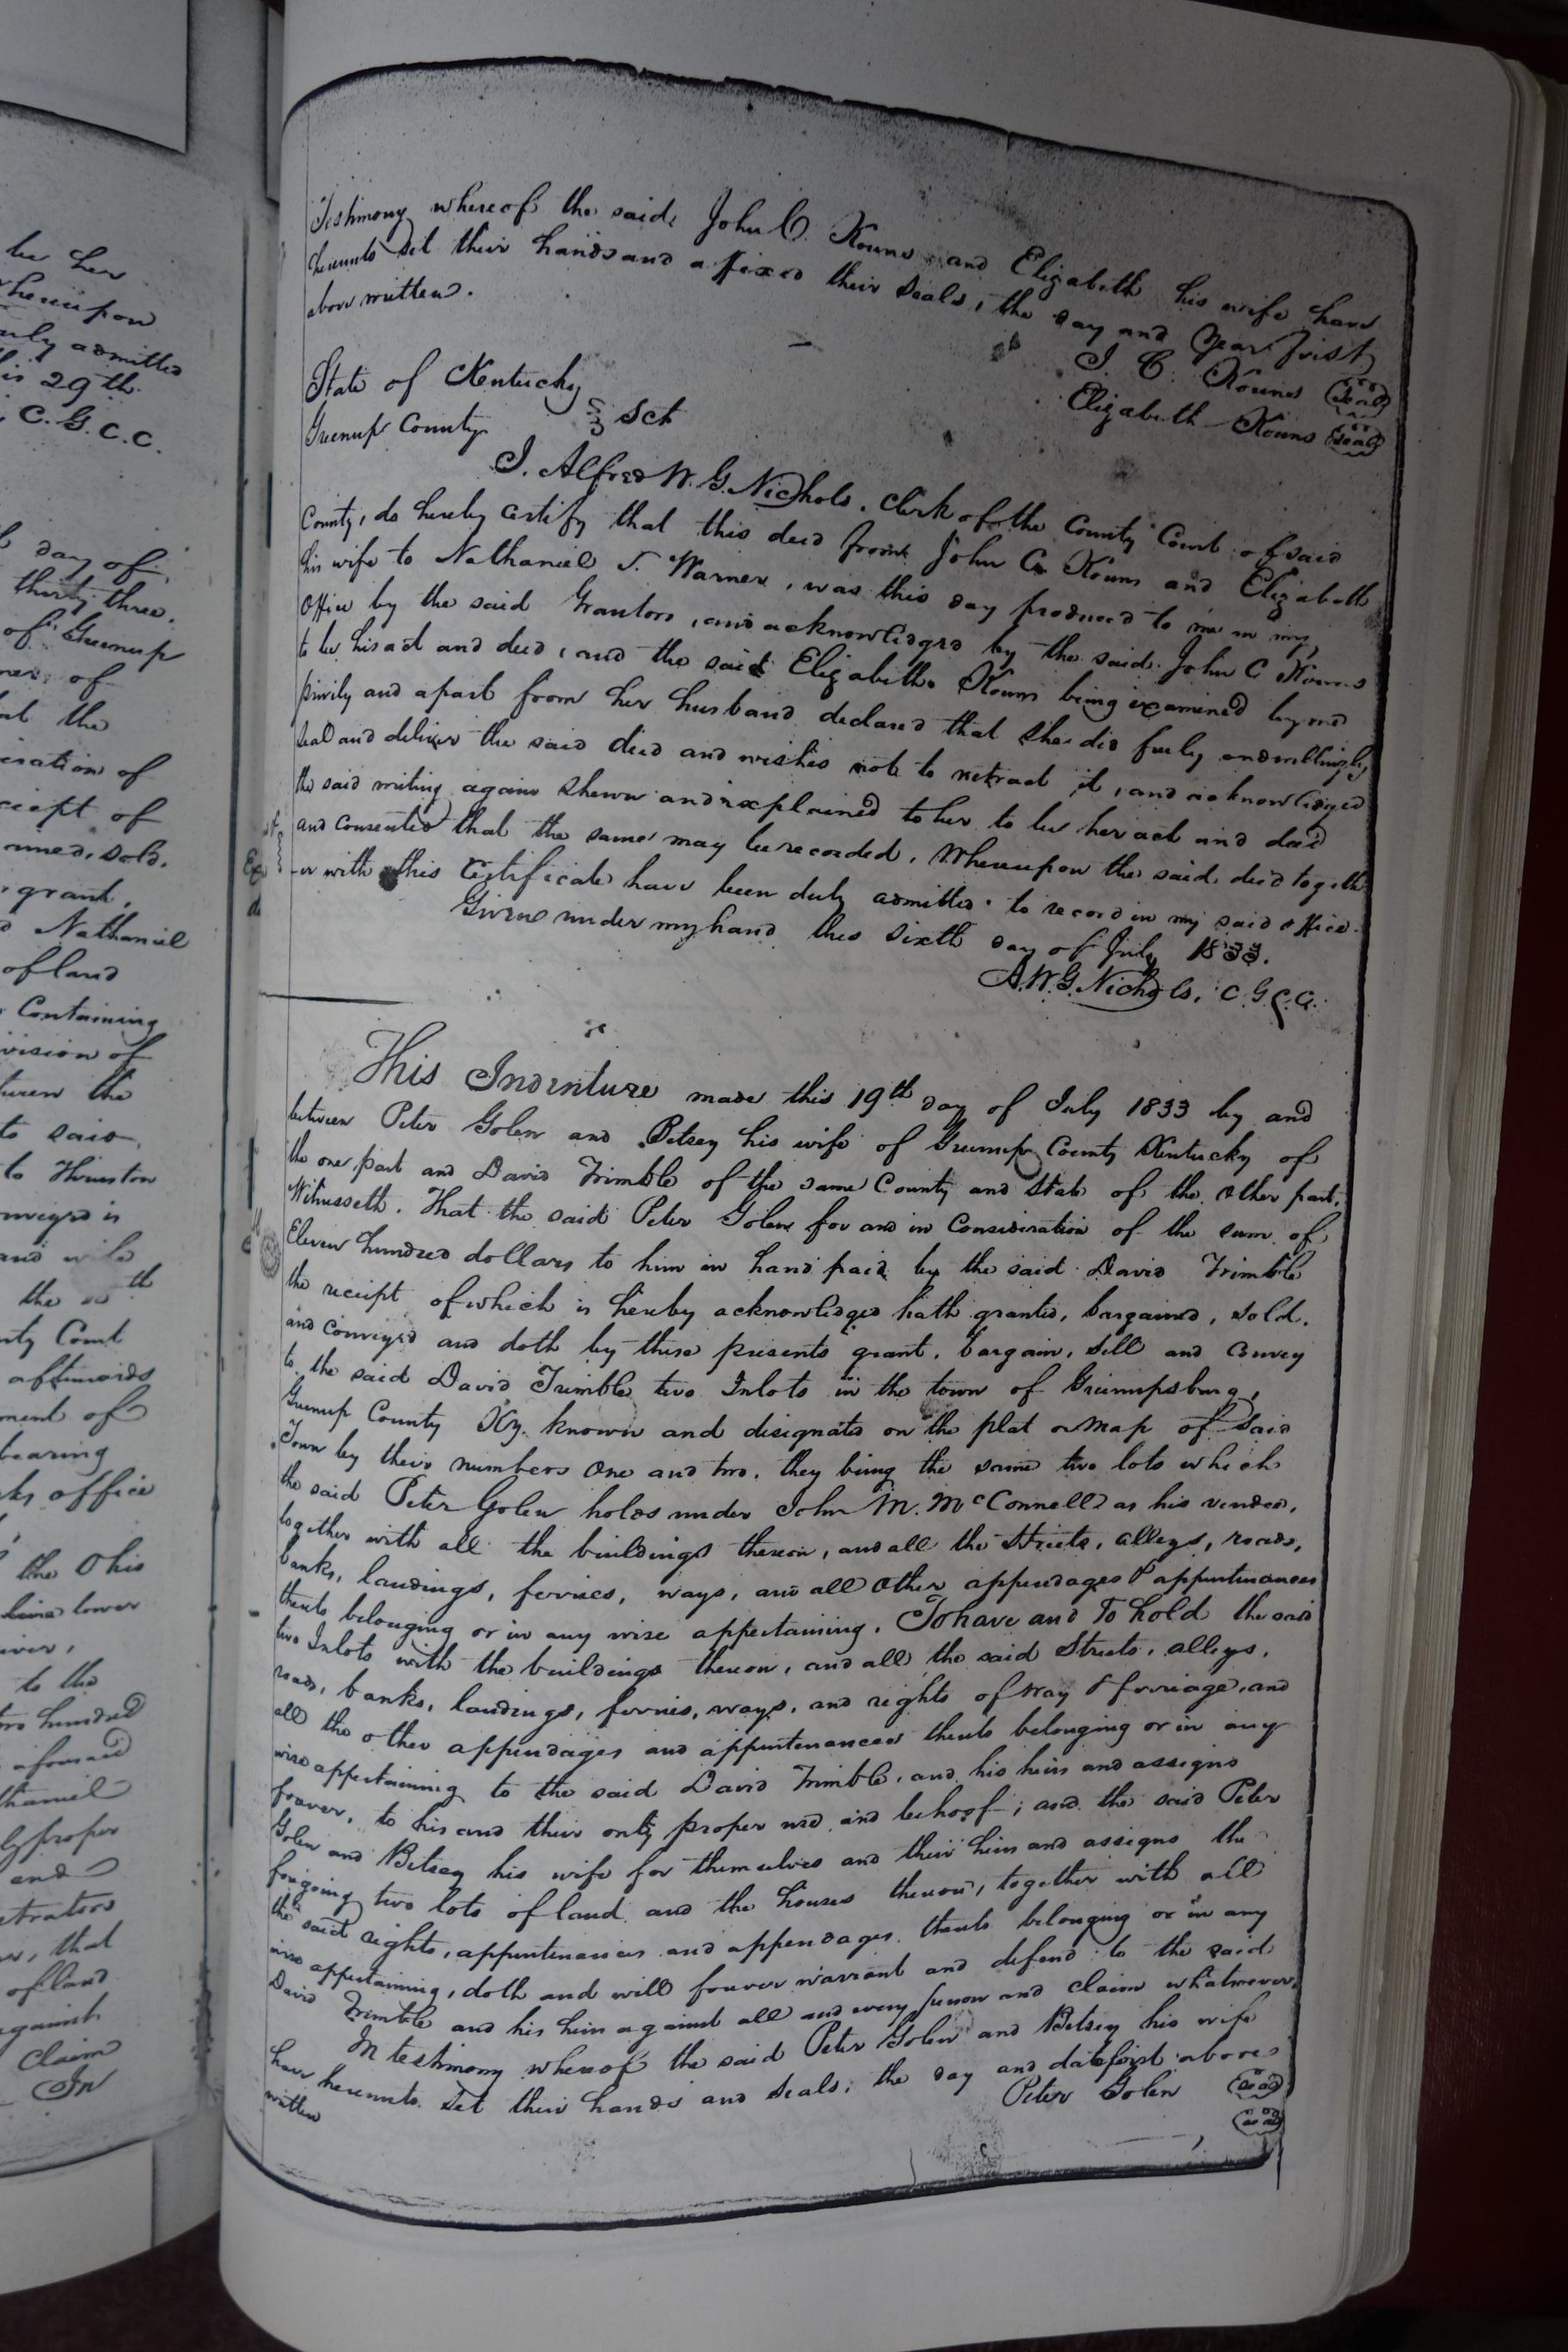 be her
whereupon
duly admitted
is 29th
C. G. C. C.
day of
thirty three.
of Greenup
of
the
eration of
receipt of
sold.
grant,
Nathaniel
of land
Containing
vision of
the
to said
to Thruston
conveyed is
and wife
the th
nty Court
afterwards
ment of
bearing
office
the Ohio
lower
river,
to the
two hundred
aforesaid
thaniel
proper
and
that
of land
against
Claim
In
Testimony whereof the said John C. Kouns and Elizabeth his wife have
hereunto set their hands and affixed their seals, the day and year first
above written.
J. C. Kouns (seal)
Elizabeth Kouns (seal)
State of Kentucky
Greenup County Sct
I. Alfred W. G. Nichols. Clerk of the County Court of said
County, do hereby certify that this deed from John C. Kouns and Elizabeth
his wife to Nathaniel S. Warner, was this day produced to me in my
Office by the said Grantors, and acknowledged by the said John C Kouns
to be his act and deed, and the said Elizabeth Kouns being examined by me
privily and apart from her husband declared that she did freely and willingly
seal and deliver the said deed and wishes not to retract it, and acknowledged
the said writing again shewn and explained to her to be her act and deed
and consented that the same may be recorded. Whereupon the said deed togeth
-er with this Certificate have been duly admitted to record in my said office.
Given under my hand this sixth day of July 1833.
A. W. G. Nichols, C. G. C. C.
This Indenture made this 19th day of July 1833 by and
between Peter Golen and Betsey his wife of Greenup County Kentucky of
the one part and David Trimble of the same County and State of the other part.
Witnesseth. That the said Peter Golen for and in Consideration of the sum of
Eleven hundred dollars to him in hand paid by the said David Trimble
the receipt of which is hereby acknowledged hath granted, bargained, sold.
and conveyed and doth by these presents grant, bargain, sell and convey
to the said David Trimble two Inlots in the town of Greenupsburg,
Greenup County Ky. known and designated on the plat or map of said
Town by their numbers One and two. they being the same two lots which
the said Peter Golen holds under John M. McConnell as his vendee,
together with all the buildings thereon, and all the Streets, alleys, roads,
banks, landings, ferries, ways, and all other appendages & appurtenances
thereto belonging or in any wise appertaining. To have and To hold the said
two Inlots with the buildings thereon, and all the said Streets, alleys,
roads, banks, landings, ferries, ways, and rights of way & ferriage, and
all the other appendages and appurtenances thereto belonging or in any
wise appertaining to the said David Trimble, and his heirs and assigns
forever, to his and their only proper use and behoof; and the said Peter
Golen and Betsey his wife for themselves and their heirs and assigns the
foregoing two lots of land and the houses thereon, together with all
the said rights, appurtenances and appendages thereto belonging or in any
wise appertaining, doth and will forever warrant and defend to the said
David Trimble and his heirs against all and every person and claim whatsoever.
In testimony whereof the said Peter Golen and Betsey his wife
have hereunto set their hands and seals, the day and date first above
written
Peter Golen (seal)
(seal)